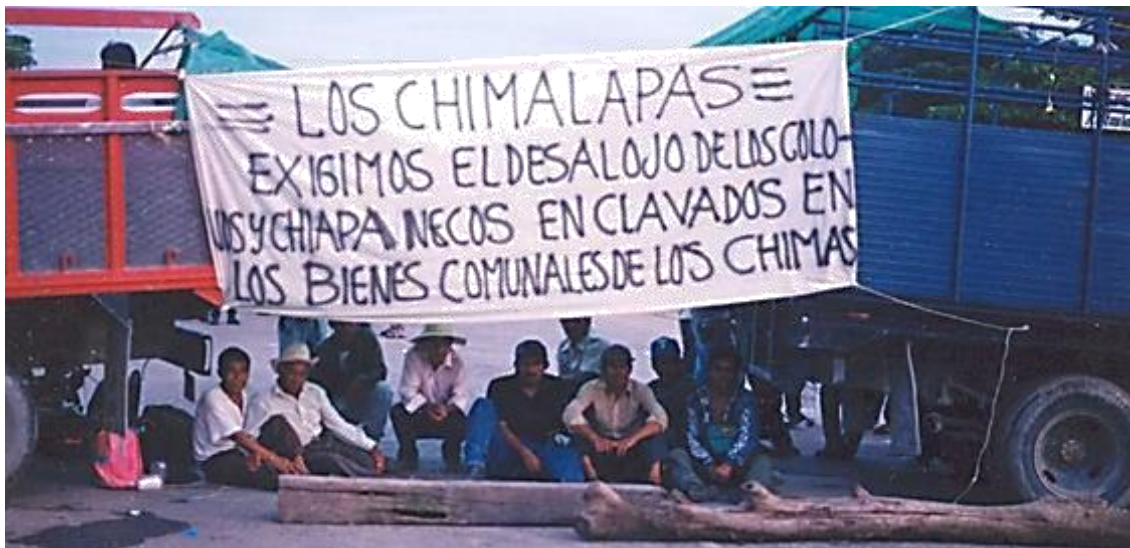 LOS CHIMALAPAS
EXIGIMOS EL DESALOJO DE LOS COLO-
NOS Y CHIAPANECOS ENCLAVADOS EN
LOS BIENES COMUNALES DE LOS CHIMAS